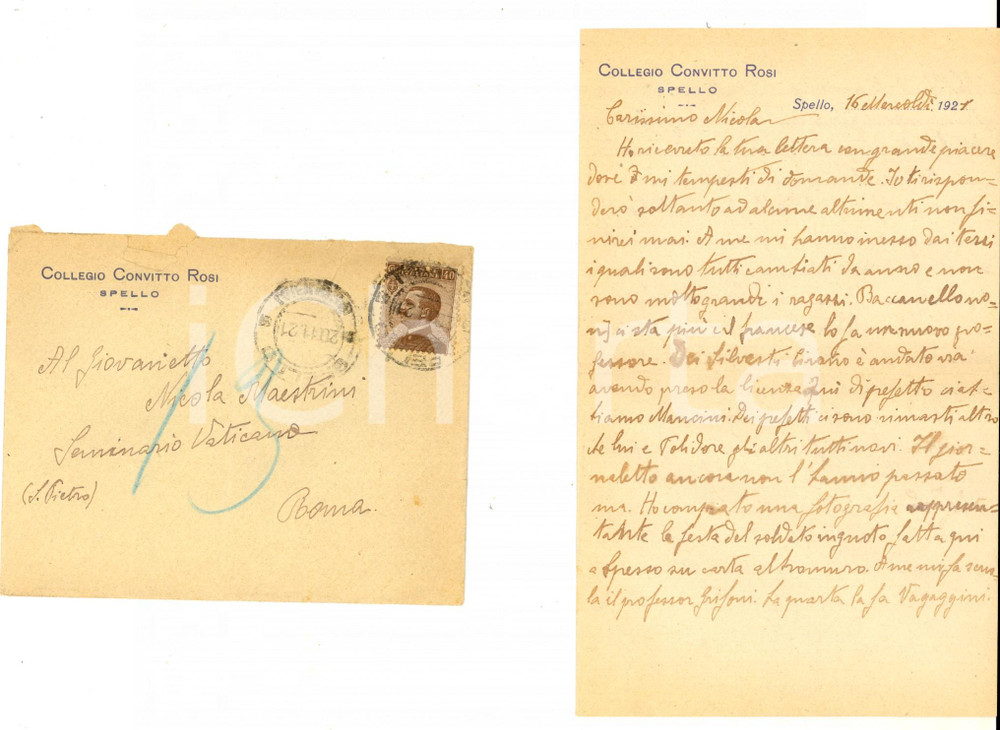 COLLEGIO CONVITTO ROSI
SPELLO
Al Giovanetto
Nicola Maestrini
Seminario Vaticano
(S. Pietro)
Roma.
13
40
20.11.21
COLLEGIO CONVITTO ROSI
SPELLO
Spello, 16 Mercoldì 1921
Carissimo Nicola
Ho ricevuto la tua lettera con grande piacere
dove mi tempesti di domande. Io ti rispon=
derò soltanto ad alcune altrimenti non fi=
nirei mai. A me mi hanno messo dai terzi
i quali sono tutti cambiati da anno e non
sono molto grandi i ragazzi. Baccanello no=
n ci sta più e il francese lo fa un nuovo pro=
fessore. Dei Silvestri Cirano è andato via
avendo preso la licenza qui di prefetto ciab=
tiamo Mancini. Dei prefetti ci sono rimasti altro
che lui e Polidore gli altri tutti novi. Il gior=
naletto ancora non l'hanno passato
ma. Ho comprato una fotografia rappresen=
tante la festa del soldato ingnoto fatta qui
a Spesso su carta al bromuro. A me mi fa scuo=
la il professor Grifoni. La quarta la fa Vagaggini.
ignota